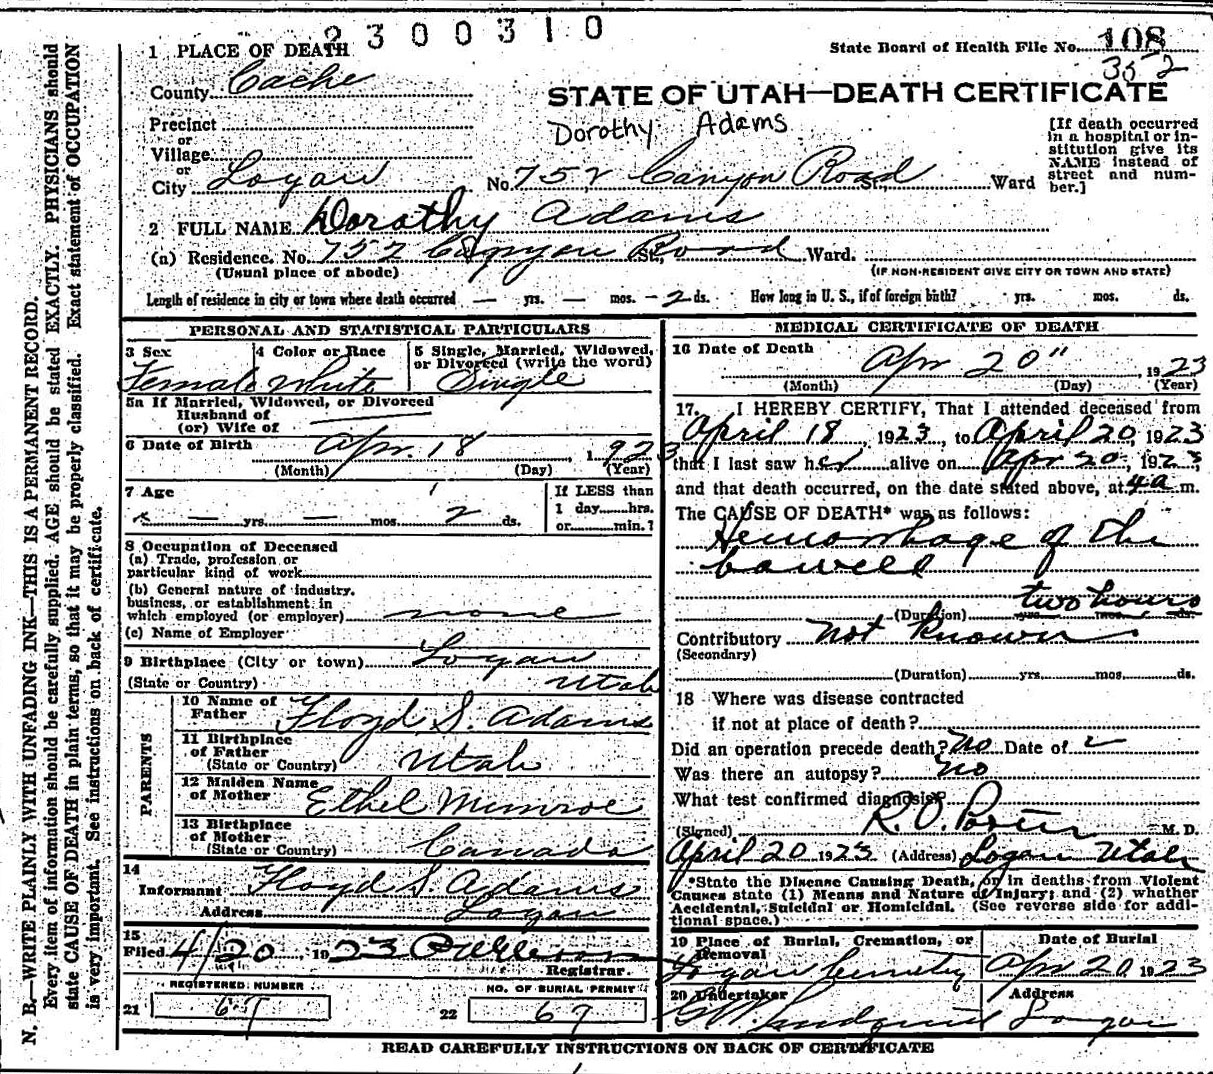 2300310
State Board of Health File No. 108
352
1 PLACE OF DEATH
County Cache
STATE OF UTAH—DEATH CERTIFICATE
Dorothy Adams
Precinct
or
Village
or
City Logan No. 752 Canyon Road St., Ward
[If death occurred in a hospital or institution give its NAME instead of street and number.]
2 FULL NAME Dorothy Adams
(a) Residence. No. 752 Canyon Road St., Ward.
(Usual place of abode) (IF NON-RESIDENT GIVE CITY OR TOWN AND STATE)
Length of residence in city or town where death occurred — yrs. — mos. — 2 ds. How long in U. S., if of foreign birth? yrs. mos. ds.
PERSONAL AND STATISTICAL PARTICULARS
3 Sex 4 Color or Race 5 Single, Married, Widowed, or Divorced (write the word)
Female White Single
5a If Married, Widowed, or Divorced
Husband of
(or) Wife of
6 Date of Birth Apr. 18, 1923
(Month) (Day) (Year)
7 Age If LESS than
— yrs. — mos. 2 ds. 1 day hrs.
or min.?
8 Occupation of Deceased
(a) Trade, profession or
particular kind of work
(b) General nature of industry,
business, or establishment in
which employed (or employer) none
(c) Name of Employer
9 Birthplace (City or town) Logan
(State or Country) Utah
PARENTS
10 Name of Father Floyd S. Adams
11 Birthplace of Father
(State or Country) Utah
12 Maiden Name of Mother Ethel Munroe
13 Birthplace of Mother
(State or Country) Canada
14
Informant Floyd S. Adams
Address Logan
15
Filed 4/20, 1923
Registrar.
REGISTERED NUMBER NO. OF BURIAL PERMIT
21 67 22 67
MEDICAL CERTIFICATE OF DEATH
16 Date of Death Apr 20", 1923
(Month) (Day) (Year)
17. I HEREBY CERTIFY, That I attended deceased from
April 18, 1923, to April 20, 1923
that I last saw her alive on Apr 20, 1923,
and that death occurred, on the date stated above, at 4 a m.
The CAUSE OF DEATH* was as follows:
Hemorrhage of the
bowell
two hours
(Duration) yrs. mos. ds.
Contributory Not known
(Secondary)
(Duration) yrs. mos. ds.
18 Where was disease contracted
if not at place of death?
Did an operation precede death? No Date of
Was there an autopsy? No
What test confirmed diagnosis?
(Signed) R. O. Porter M. D.
April 20 1923 (Address) Logan Utah
*State the Disease Causing Death, or in deaths from Violent
Causes state (1) Means and Nature of Injury; and (2) whether
Accidental, Suicidal or Homicidal. (See reverse side for addi-
tional space.)
19 Place of Burial, Cremation, or Removal Date of Burial
Logan Cemetery Apr 20 1923
20 Undertaker Address
Logan
READ CAREFULLY INSTRUCTIONS ON BACK OF CERTIFICATE
N. B.—WRITE PLAINLY WITH UNFADING INK—THIS IS A PERMANENT RECORD.
Every item of information should be carefully supplied. AGE should be stated EXACTLY. PHYSICIANS should
state CAUSE OF DEATH in plain terms, so that it may be properly classified. Exact statement of OCCUPATION
is very important. See instructions on back of certificate.